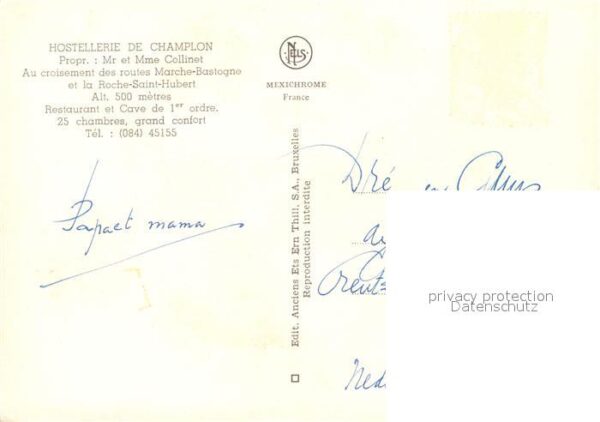 HOSTELLERIE DE CHAMPLON
Propr. : Mr et Mme Collinet
Au croisement des routes Marche-Bastogne
et la Roche-Saint-Hubert
Alt. 500 mètres
Restaurant et Cave de 1er ordre.
25 chambres, grand confort
Tél. : (084) 45155
Papa et mama
NELS
MEXICHROME
France
Edit. Anciens Ets Ern Thill, S.A., Bruxelles
Reproduction interdite
Dré
Ned
privacy protection
Datenschutz